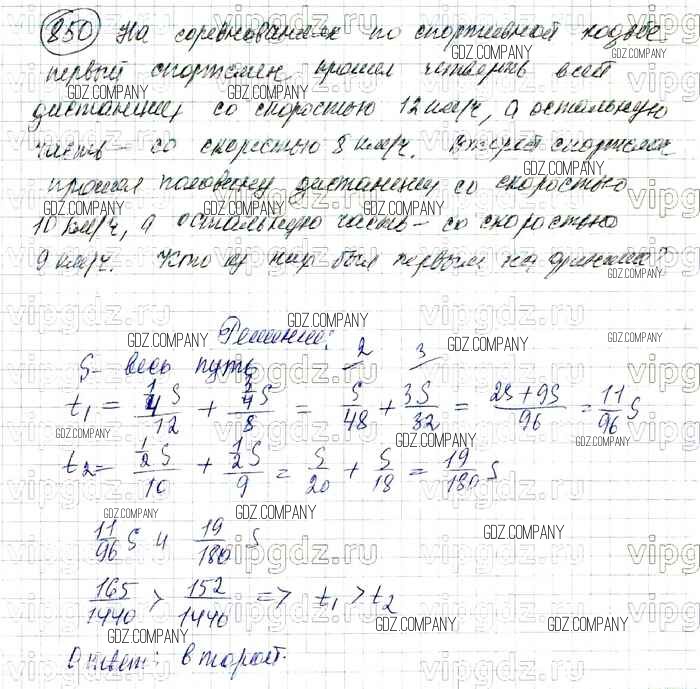 850 На соревнованиях по спортивной ходьбе
первый спортсмен прошел четверть всей
дистанции со скоростью 12 км/ч, а остальную
часть - со скоростью 8 км/ч. Второй спортсмен
прошел половину дистанции со скоростью
10 км/ч, а остальную часть - со скоростью
9 км/ч. Кто из них был первым на финише?
Решение:
S - весь путь
t₁ = (1/4 S)/12 + (3/4 S)/8 = S/48 + 3S/32 = (2S + 9S)/96 = 11/96 S
t₂ = (1/2 S)/10 + (1/2 S)/9 = S/20 + S/18 = 19/180 S
11/96 S и 19/180 S
165/1440 > 152/1440 => t₁ > t₂
Ответ: второй.
GDZ.COMPANY
vipgdz.ru